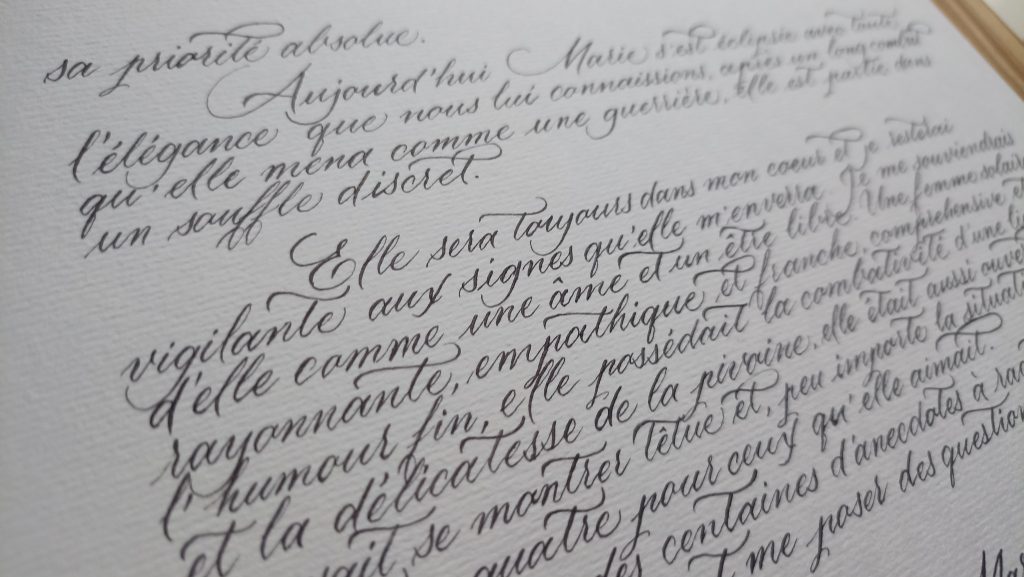 sa priorité absolue.
Aujourd'hui Marie s'est éclipsée avec toute
l'élégance que nous lui connaissions, après un long combat
qu'elle mena comme une guerrière. Elle est partie dans
un souffle discret.
Elle sera toujours dans mon coeur et je resterai
vigilante aux signes qu'elle m'enverra. Je me souviendrais
d'elle comme une âme et un être libre. Une femme solaire
rayonnante, empathique et franche, comprehensive et
l'humour fin, elle possédait la combativité d'une
et la délicatesse de la pivoine, elle était aussi
se montrer têtue et, peu importe la
quatre pour ceux qu'elle aimait.
des centaines d'anecdotes à
me poser des question